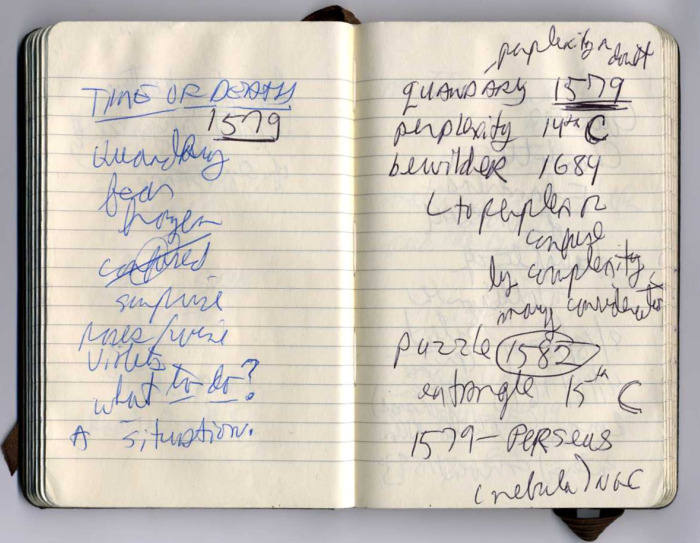 TIME OR DEATH
1579
Quandary
fear
frozen
confused
surprise
roses/wine
violets
what to do?
A situation.
perplexity or doubt
QUANDARY 1579
perplexity 14th C
bewilder 1684
to perplex or
confuse
by complexity,
many considerations
puzzle 1582
entangle 15th C
1579 - PERSEUS
(nebula) NGC